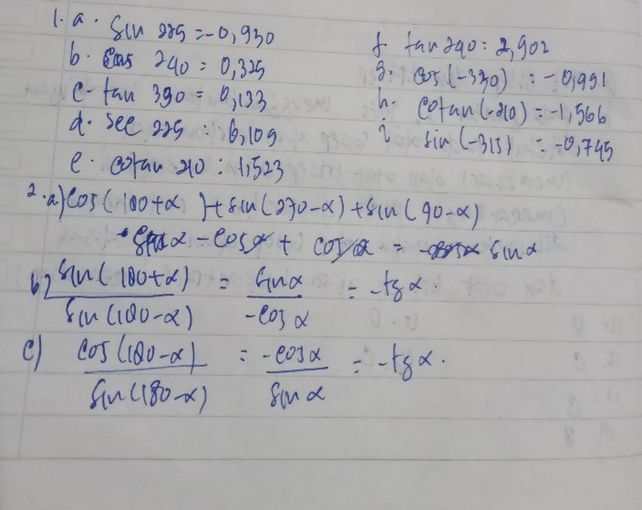 1. a. sin 225 = -0,930
b. cos 240 = 0,325
c. tan 390 = 0,133
d. sec 225 = 6,109
e. cotan 210 : 1,523
f. tan 240 : 2,902
g. cos(-330) = -0,991
h. cotan(-210) = -1,566
i. sin(-315) = -0,745
2. a) cos(180+α) + sin(270-α) + sin(90-α)
α - cos α + cos α = sin α
b) sin(180+α) / sin(180-α) = sin α / -cos α = -tg α.
c) cos(180-α) / sin(180-α) = -cos α / sin α = -tg α.